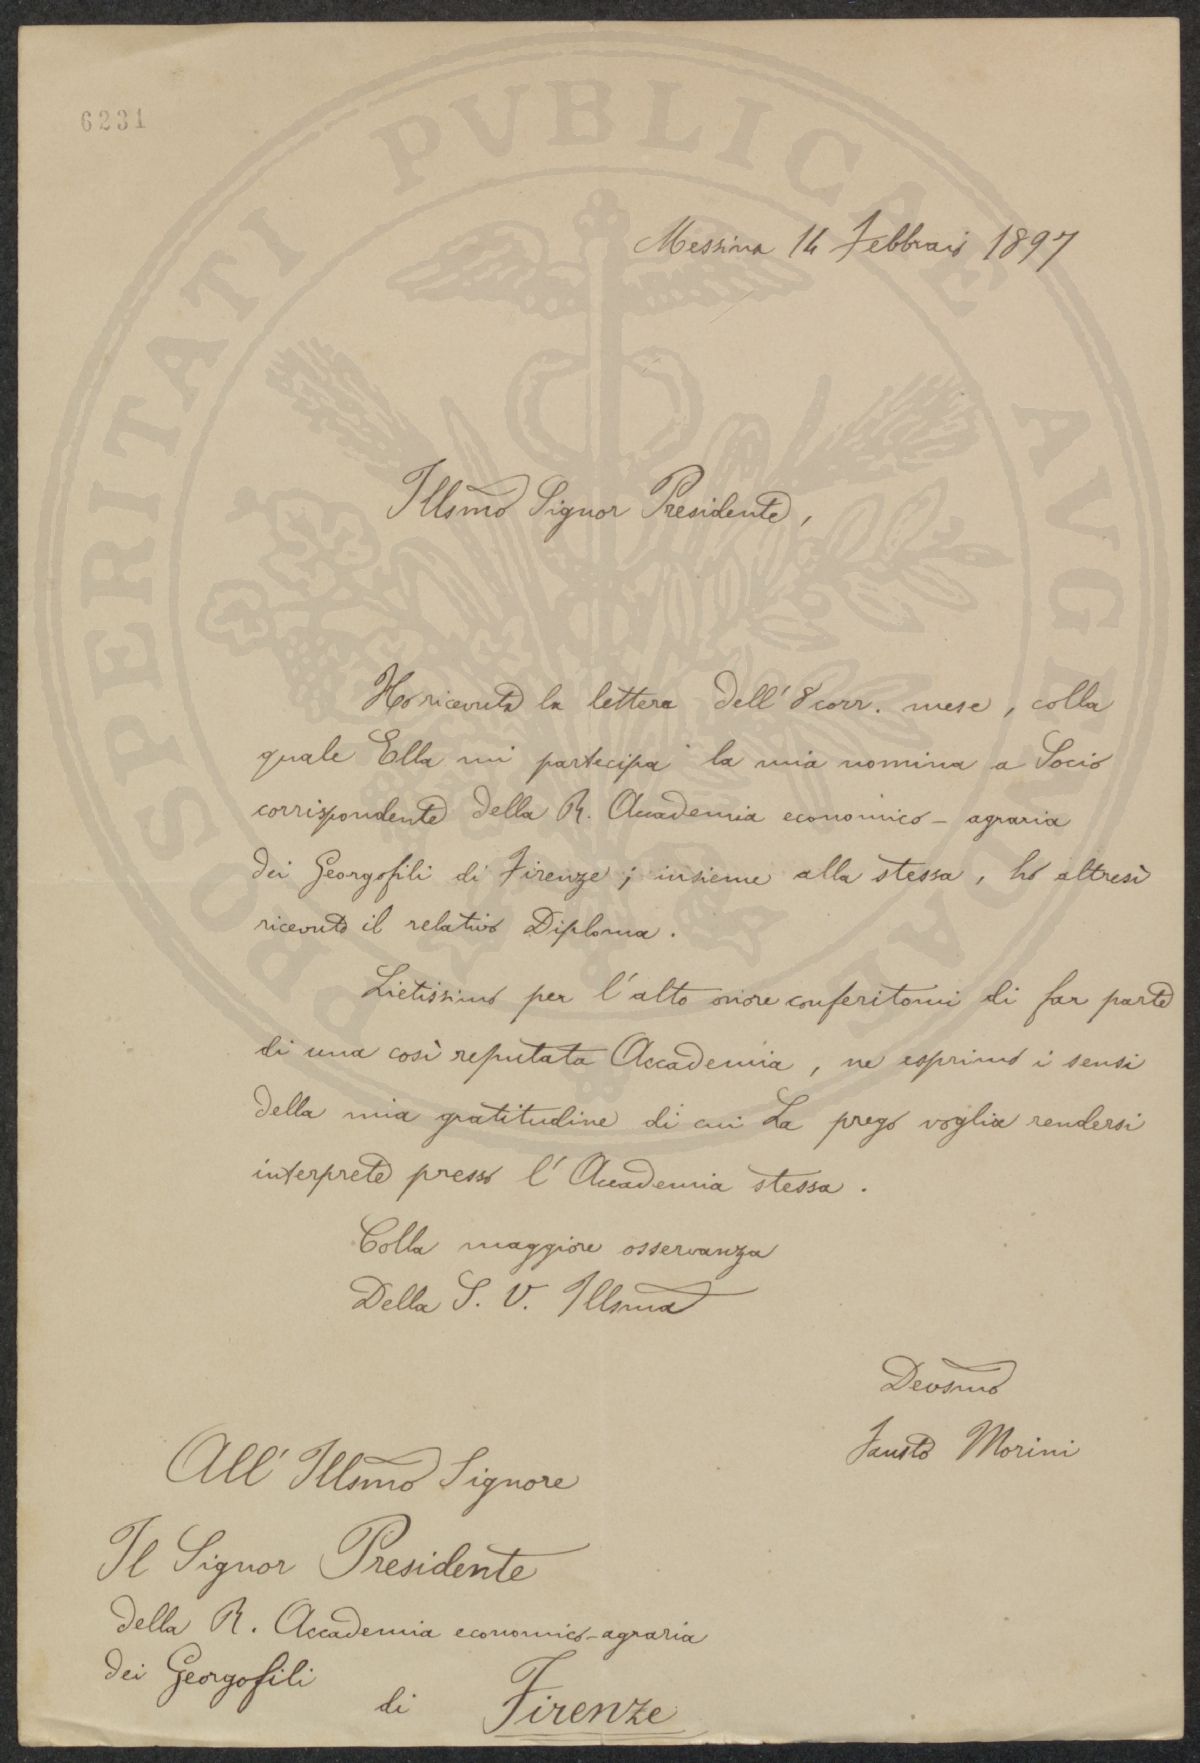 6231
PROSPERITATI PVBLICAE AVGENDAE
Messina 14 Febbraio 1897
Illsmo Signor Presidente,
Ho ricevuta la lettera dell' 8 corr. mese, colla
quale Ella mi partecipa la mia nomina a Socio
corrispondente della R. Accademia economico-agraria
dei Georgofili di Firenze; insieme alla stessa, ho altresì
ricevuto il relativo Diploma.
Lietissimo per l'alto onore conferitomi di far parte
di una così reputata Accademia, ne esprimo i sensi
della mia gratitudine di cui La prego voglia rendersi
interprete presso l'Accademia stessa.
Colla maggiore osservanza
Della S. V. Illsma
Devsmo
Fausto Morini
All' Illsmo Signore
Il Signor Presidente
della R. Accademia economico-agraria
dei Georgofili
di Firenze